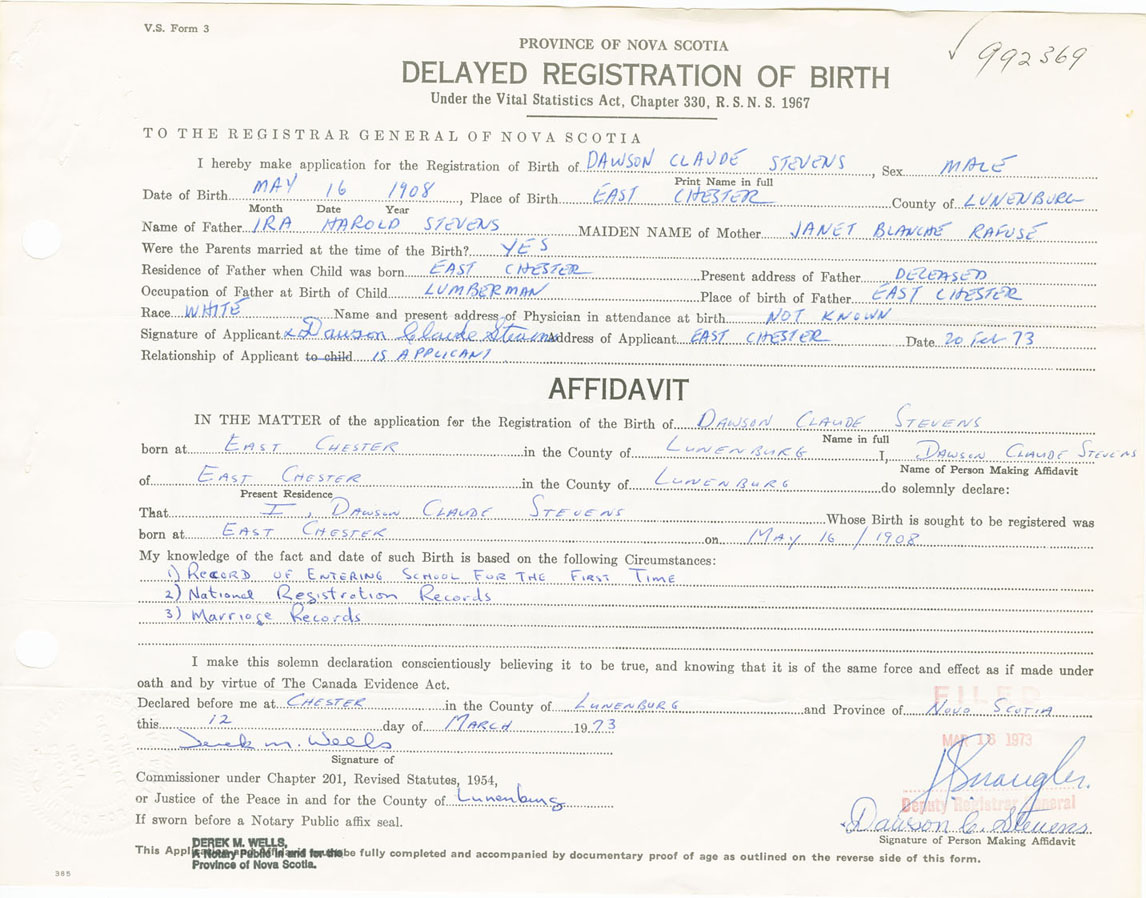 V.S. Form 3
✓ 992369
PROVINCE OF NOVA SCOTIA
DELAYED REGISTRATION OF BIRTH
Under the Vital Statistics Act, Chapter 330, R. S. N. S. 1967
TO THE REGISTRAR GENERAL OF NOVA SCOTIA
I hereby make application for the Registration of Birth of DAWSON CLAUDE STEVENS, Sex MALE
Print Name in full
Date of Birth MAY 16 1908, Place of Birth EAST CHESTER County of LUNENBURG
Month Date Year
Name of Father IRA HAROLD STEVENS MAIDEN NAME of Mother JANET BLANCHE RAFUSE
Were the Parents married at the time of the Birth? YES
Residence of Father when Child was born EAST CHESTER Present address of Father DECEASED
Occupation of Father at Birth of Child LUMBERMAN Place of birth of Father EAST CHESTER
Race WHITE Name and present address of Physician in attendance at birth NOT KNOWN
Signature of Applicant x Dawson Claude Stevens Address of Applicant EAST CHESTER Date 20 Feb 73
Relationship of Applicant to child IS APPLICANT
AFFIDAVIT
IN THE MATTER of the application for the Registration of the Birth of DAWSON CLAUDE STEVENS
Name in full
born at EAST CHESTER in the County of LUNENBURG I, DAWSON CLAUDE STEVENS
Name of Person Making Affidavit
of EAST CHESTER in the County of LUNENBURG do solemnly declare:
Present Residence
That I, DAWSON CLAUDE STEVENS Whose Birth is sought to be registered was
born at EAST CHESTER on MAY 16 / 1908
My knowledge of the fact and date of such Birth is based on the following Circumstances:
1) RECORD OF ENTERING SCHOOL FOR THE FIRST TIME
2) National Registration Records
3) Marriage Records
I make this solemn declaration conscientiously believing it to be true, and knowing that it is of the same force and effect as if made under
oath and by virtue of The Canada Evidence Act.
Declared before me at CHESTER in the County of LUNENBURG and Province of NOVA SCOTIA
FILED
this 12 day of MARCH 1973
MAR 16 1973
Derek M. Wells
Signature of
Commissioner under Chapter 201, Revised Statutes, 1954,
or Justice of the Peace in and for the County of Lunenburg
Deputy Registrar General
If sworn before a Notary Public affix seal.
Dawson C. Stevens
Signature of Person Making Affidavit
DEREK M. WELLS,
A Notary Public in and for the
Province of Nova Scotia.
This Application and Affidavit must be fully completed and accompanied by documentary proof of age as outlined on the reverse side of this form.
385